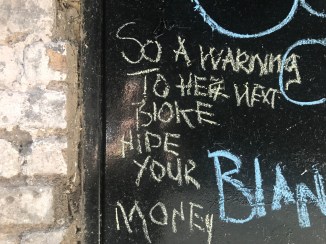 SO A WARNING
TO HER NEXT
BLOKE
HIDE
YOUR
MONEY
BIAN